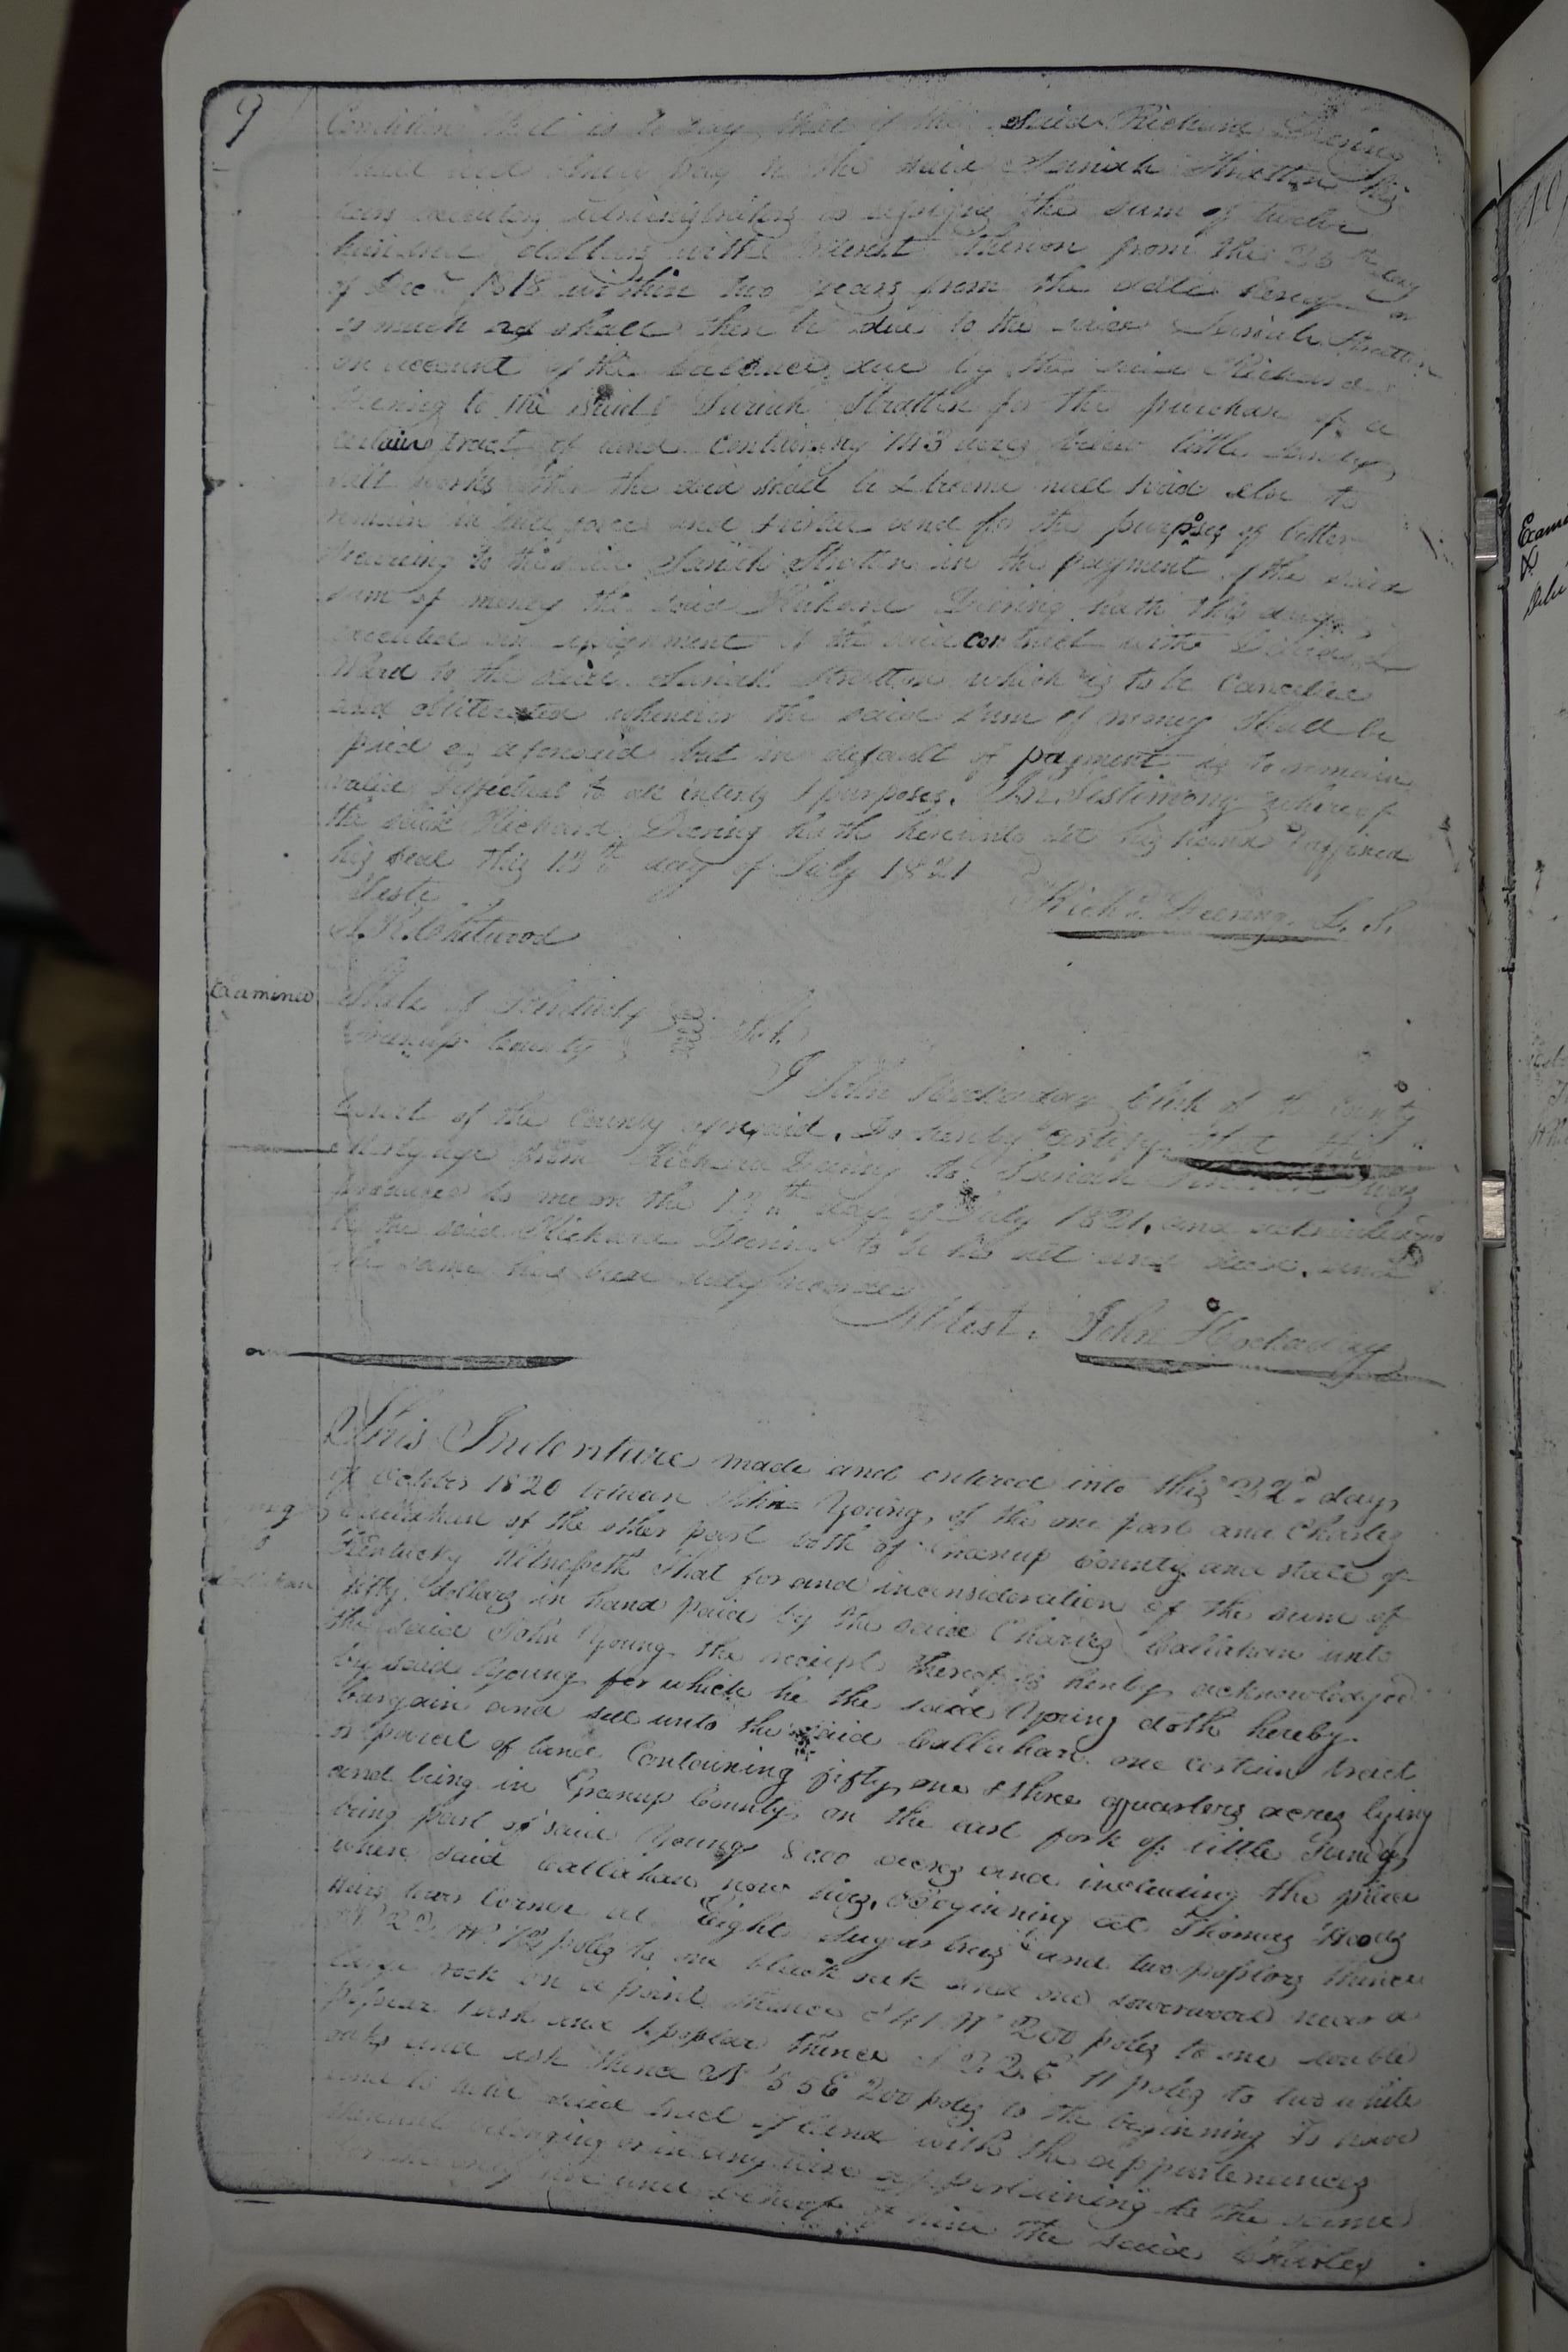 9
Condition that is to say that if the said Richard Deering
shall and pay to the said Suriah Stratton his
heirs executors administrators or assigns the sum of twelve
hundred dollars with interest thereon from the 25th day
of Decr 1818 within two years from the date hereof or
so much as shall then be due to the said Suriah Stratton
on account of the balance due by the said Richard
Deering to the said Suriah Stratton for the purchase of a
certain tract of land containing acres below little Sandy
salt works then the said shall be & become null & void else to
remain in full force and virtue and for the purposes of better
securing to the said Suriah Stratton in the payment of the said
sum of money the said Richard Deering hath this day
executed an assignment of the said contract with
Ward to the said Suriah Stratton which is to be Cancelled
and obliterated whenever the said sum of money shall be
paid as aforesaid but in default of payment is to remain
valid & effectual to all intents & purposes. In Testimony whereof
the said Richard Deering hath hereunto set his hand & affixed
his seal this 13th day of July 1821
Teste
Richd. Deering L. S.
Chitwood
Examined
State of Kentucky
Greenup County Sct.
I John Hockaday Clerk of the County
Court of the County aforesaid, Do hereby Certify that this
mortgage from Richard Deering to Suriah Stratton was
produced to me on the 13th day of July 1821, and acknowledged
by the said Richard Deering to be his act and deed, and
the same has been duly recorded
Attest. John Hockaday
This Indenture made and entered into this 22d. day
of October 1820 between John Young, of the one part and Charles
Callahan of the other part both of Greenup County and state of
Kentucky Witnesseth That for and in consideration of the sum of
fifty dollars in hand paid by the said Charles Callahan unto
the said John Young the receipt thereof is hereby acknowledged
by said Young for which he the said Young doth hereby
bargain and sell unto the said Callahan one certain tract
or parcel of land Containing fifty one & three quarters acres lying
and being in Greenup County on the east fork of little Sandy
being part of said Youngs 8000 acres and including the place
where said Callahan now lives, Beginning at Thomas Hoods
corner at Eight sugar trees and two poplars thence
N 22 W 72 poles to one black oak and one sourwood near a
large rock on a point thence S 41 W 200 poles to one double
poplar 1 ash and 1 poplar thence S 22 E 11 poles to two white
oaks and ash thence N 55 E 200 poles to the beginning To have
and to hold said tract of land with the appurtenances
thereunto belonging or in any wise appertaining to the same
for the only use and behoof of him the said Charles